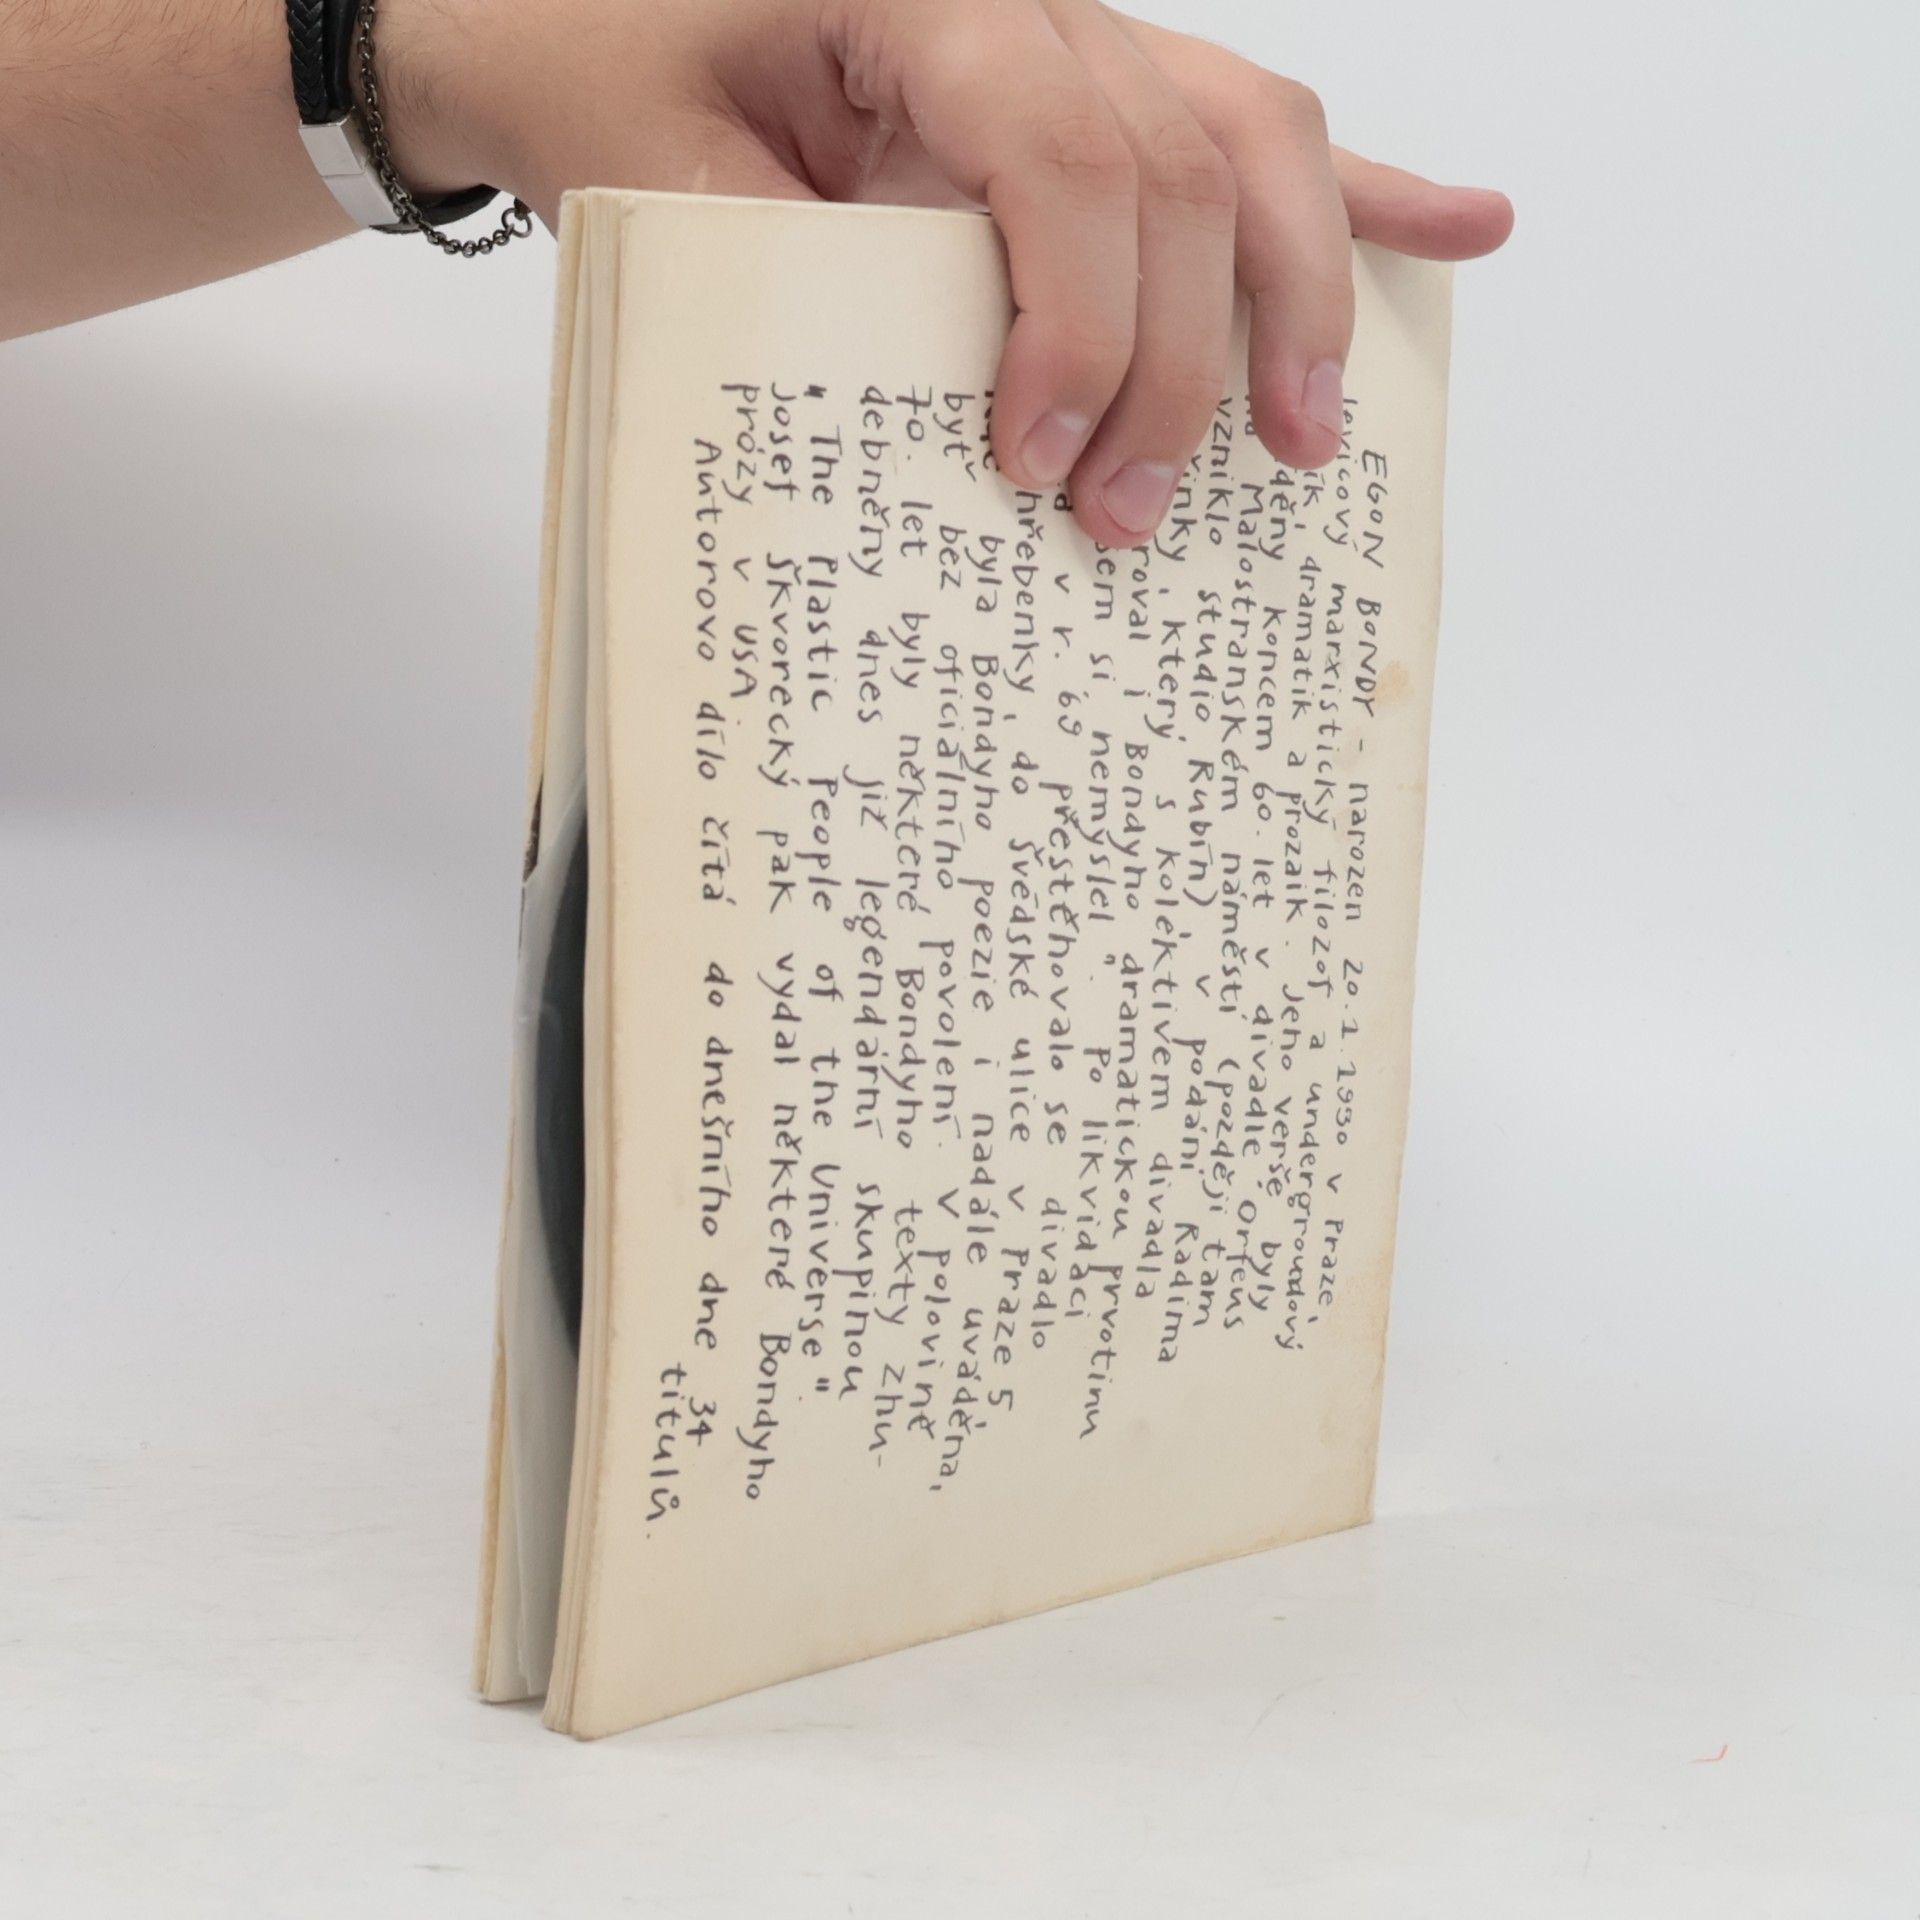 EGON BONDY – narozen 20.1.1930 v Praze,
levicový marxistický filozof a undergroundový
dramatik a prozaik. Jeho verše byly
koncem 60. let v divadle Orfeus
Malostranském náměstí (později tam
vzniklo studio Rubín), v podání Radima
který s kolektivem divadla
i Bondyho dramatickou prvotinu
si nemyslel". Po likvidaci
v r. 69 přestěhovalo se divadlo
hřebenky, do Švédské ulice v Praze 5
byla Bondyho poezie i nadále uváděna,
byť bez oficiálního povolení. V polovině
70. let byly některé Bondyho texty zhu-
debněny dnes již legendární skupinou
"The Plastic People of the Universe".
Josef Škvorecký pak vydal některé Bondyho
prózy v USA.
Autorovo dílo čítá do dnešního dne 34
titulů.